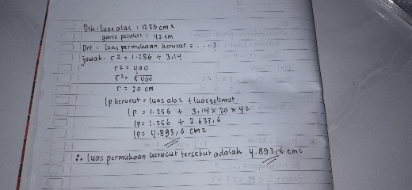 Dik : Luas alas : 1256 cm²
garis pelukis : 42 cm
Dit : Luas permukaan kerucut = ....?
jawab. r² = 1.256 ÷ 3,14
r² = 400
r² = √400
r = 20 cm
Lp kerucut = luas alas + luas selimut
LP = 1.256 + 3,14 x 20 x 42
LP = 1.256 + 2.637,6
LP = 4.893,6 cm2
∴ luas permukaan kerucut tersebut adalah 4.893,6 cm2